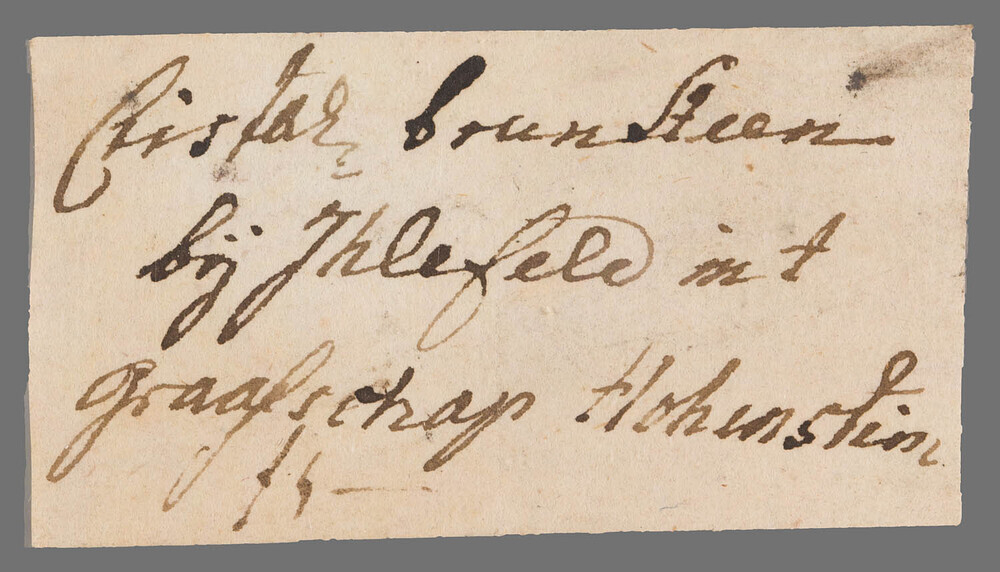 Cristal: brunsteen
bij Ihlefeld int
graafschap Hohenstein